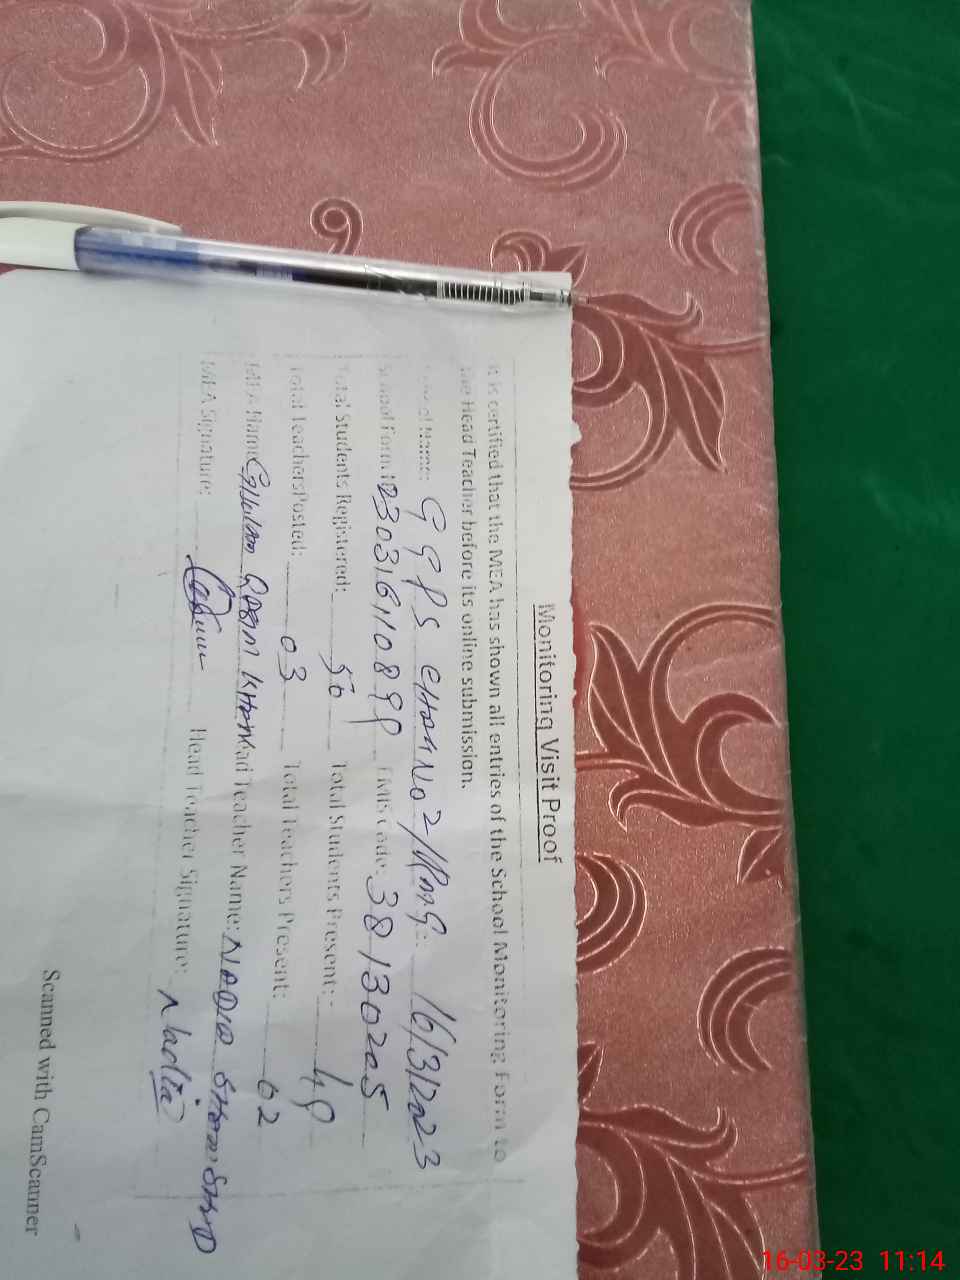 Monitoring Visit Proof
It is certified that the MEA has shown all entries of the School Monitoring Form to
the Head Teacher before its online submission.
School Name: GGPS CHAK No 2/ 16/3/2023
School Form EMIS Code: 38130205
Total Students Registered: 56 Total Students Present: 49
Total Teachers Posted: 03 Total Teachers Present: 02
MEA Name: GHULAM QASIM KHAN Head Teacher Name: NADIA
MEA Signature: Head Teacher Signature: Nadia
Scanned with CamScanner
16-03-23 11:14